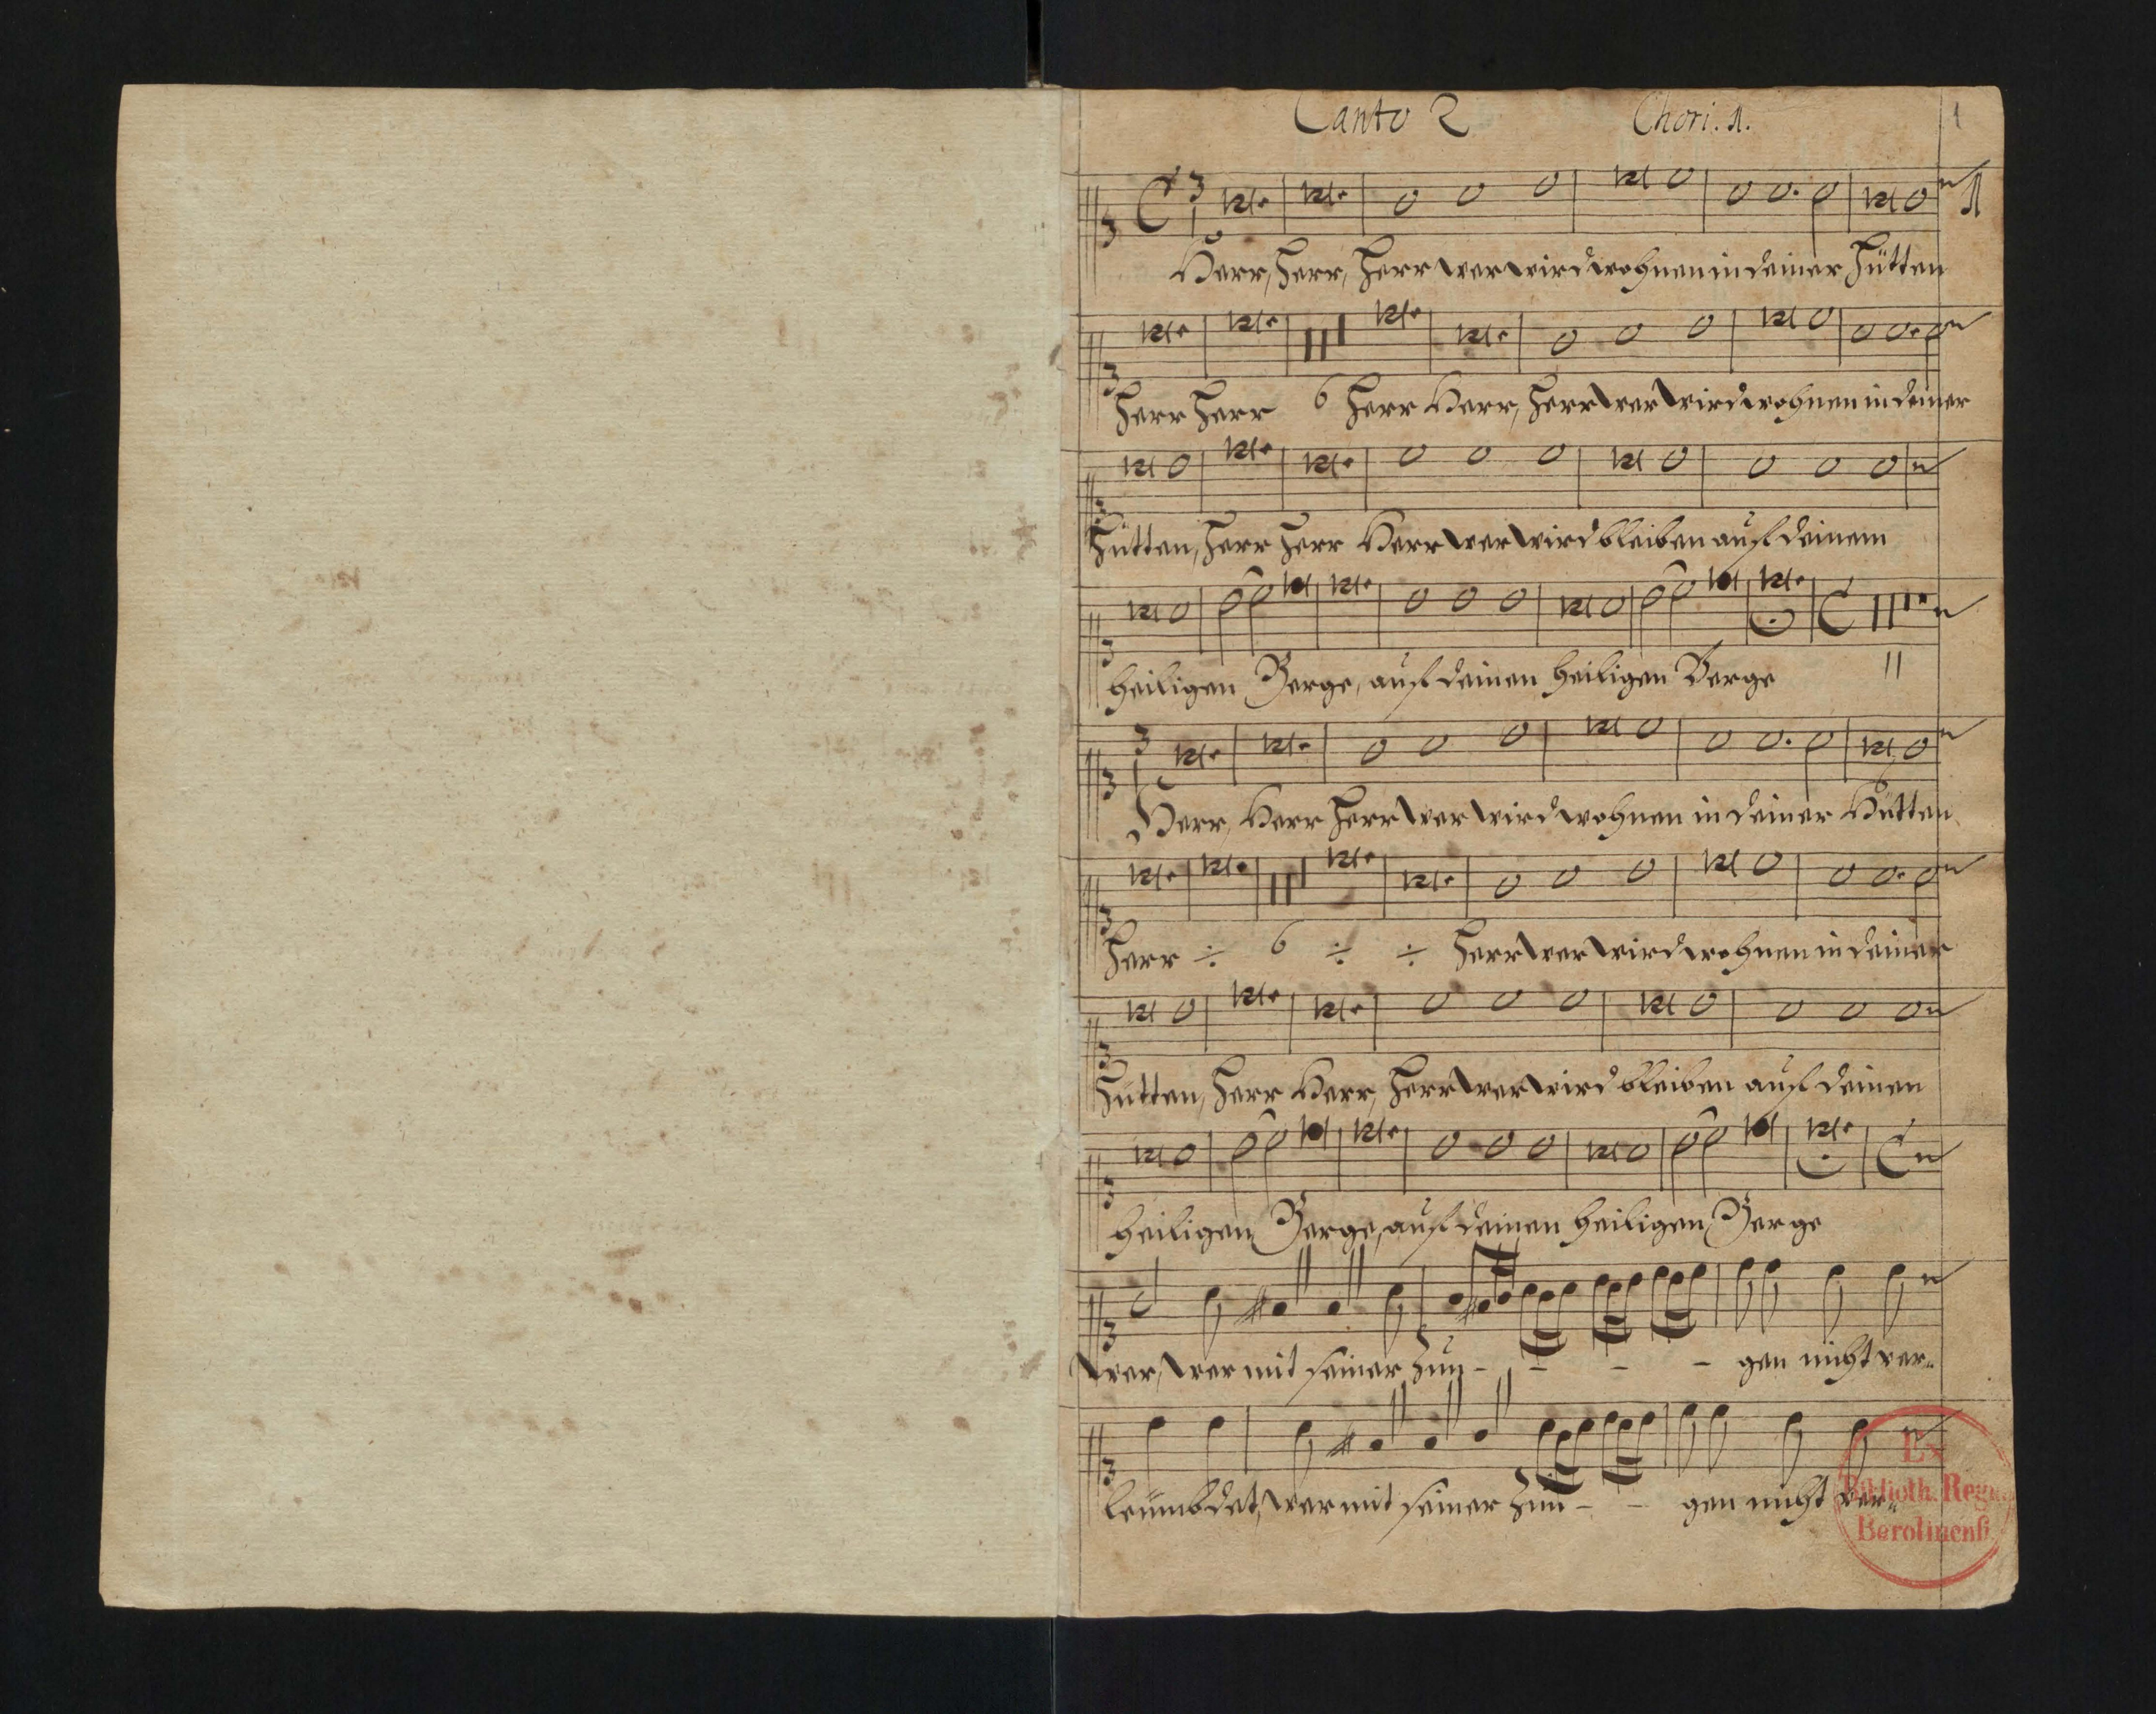 Canto 2 Chori. 1.
1
1
Herr, Herr, Herr wer wird wohnen in deiner Hütten
Herr Herr 6 Herr Herr, Herr wer wird wohnen in deiner
Hütten, Herr Herr Herr wer wird bleiben auf deinem
heiligen Berge, auf deinen heiligen Berge 11
Herr, Herr Herr wer wird wohnen in deiner Hütten
Herr ÷ 6 ÷ ÷ Herr wer wird wohnen in deiner
Hütten, Herr Herr, Herr wer wird bleiben auf deinen
heiligen Berge, auf deinen heiligen Berge
wer, wer mit seiner Zun - - - - gen nicht ver„
leumbdet, wer mit seiner Zun - - gen nicht ver„
Ex
Biblioth. Regia
Berolinenſi